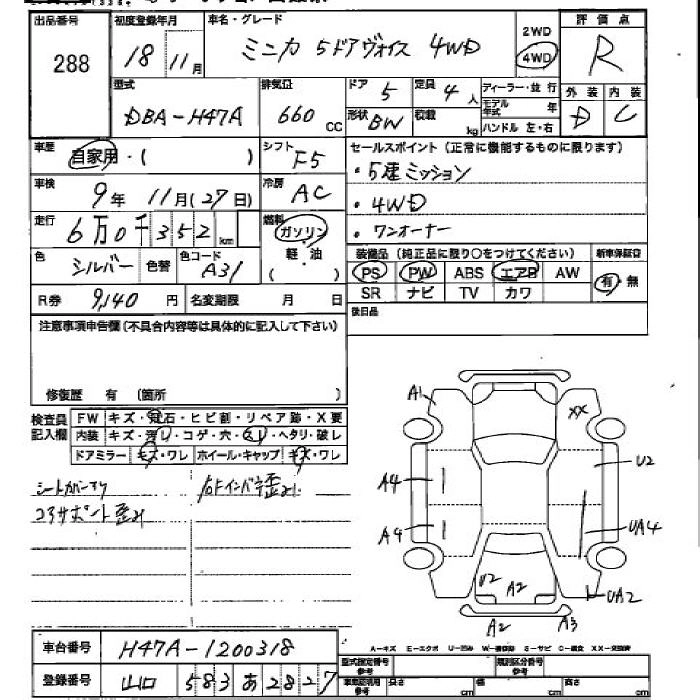 出品番号 初度登録年月 車名・グレード 2WD 評価点
288 18年 11月 ミニカ 5ドアヴォイス 4WD 4WD R
型式 排気量 ドア 5 定員 4人 ディーラー・並行 外装 内装
DBA-H47A 660 CC 形状 BW 積載 kg モデル年式 年 D C
ハンドル 左・右
車歴 自家用・( ) シフト F5 セールスポイント(正常に機能するものに限ります)
車検 9年 11月(27日) 冷房 AC ・5速ミッション
走行 6万0千352km 燃料 ガソリン ・4WD
軽・油 ・ワンオーナー
色 シルバー 色替 色コード A31 ( ) 装備品(純正品に限り○をつけてください) 新車保証書
PS PW ABS エアB AW 有・無
R券 9,140円 名変期限 月 日 SR ナビ TV カワ
注意事項申告欄(不具合内容等は具体的に記入して下さい) 後日品
修復歴 有 (箇所 )
検査員記入欄 FW キズ・飛石・ヒビ割・リペア跡・X要
内装 キズ・汚レ・コゲ・穴・スレ・ヘタリ・破レ
ドアミラー キズ・ワレ ホイール・キャップ キズ・ワレ
A1 XX
U2
A4
A4 UA4
U2 A2 UA2
A2 A3
車台番号 H47A-1200318 A-キズ E-エクボ U-凹み S-サビ XX-交換済
型式指定番号 類別区分番号
登録番号 山口 583 あ 2827 長さ cm 幅 cm 高さ cm